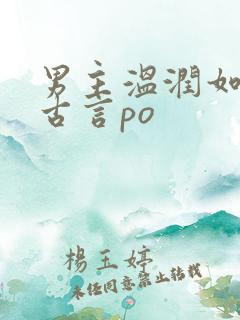 男主溫潤如
古言po
楊玉婷
未经同意禁止转载